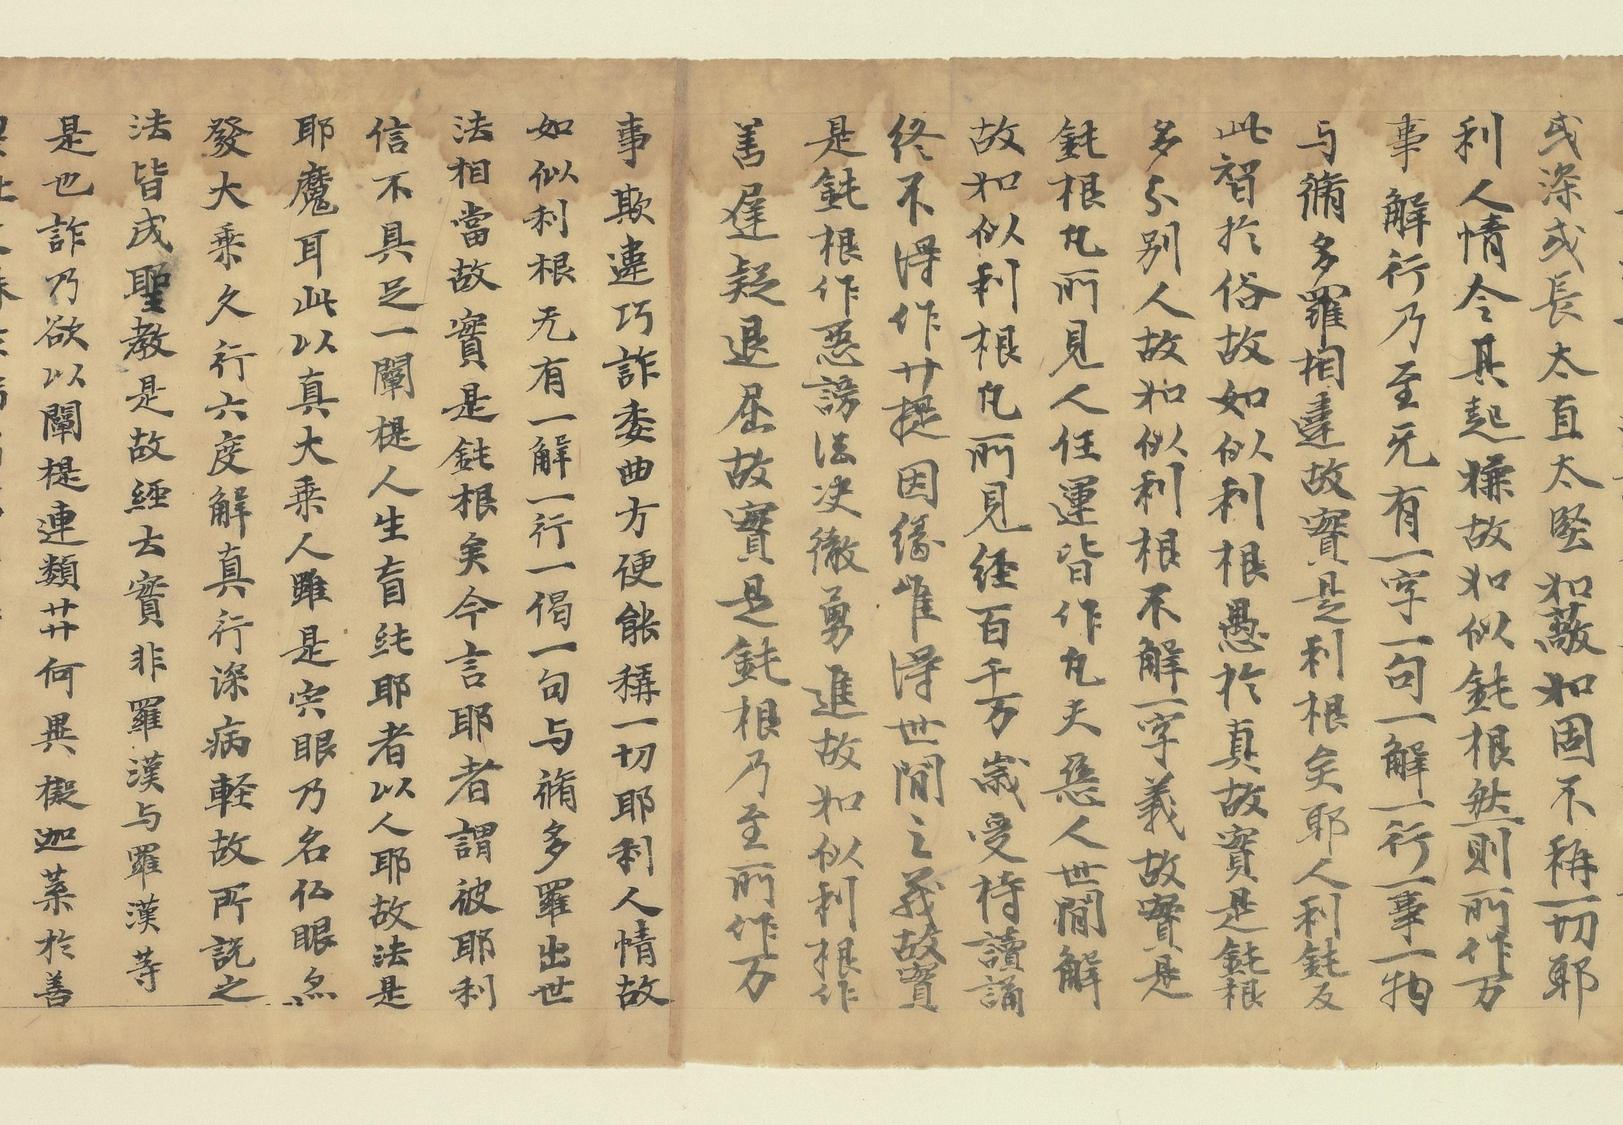 或深或長太直太堅如蔽如固不稱一切耶
利人情令其起慊故如似鈍根然則所作万
事解行乃至无有一字一句一解一行一事一物
与脩多羅相違故實是利根矣耶人利鈍反
此智扵俗故故如似利根愚扵真故實是鈍根
多分別人故如似利根不解一字義故實是
鈍根凡所見人任運皆作凡夫惡人世間解
故如似利根凡所見經百千万歲受持讀誦
終不得作廾提因緣唯得世間之義故實
是鈍根作惡謗法决徹勇進故如似利根作
善遲疑退屈故實是鈍根乃至所作万
事欺違巧詐委曲方便能稱一切耶利人情故
如似利根无有一解一行一偈一句与脩多羅出世
法相當故實是鈍根矣今言耶者謂彼耶利
信不具足一闡提人生盲純耶者以人耶故法是
耶魔耳此以真大乘人雖是宍眼乃名仏眼尒
發大乘久行六度解真行深病軽故所說之
法皆成聖教是故經云實非羅漢与羅漢等
是也詐乃欲以闡提連類廾廾何異擬迦葉扵善